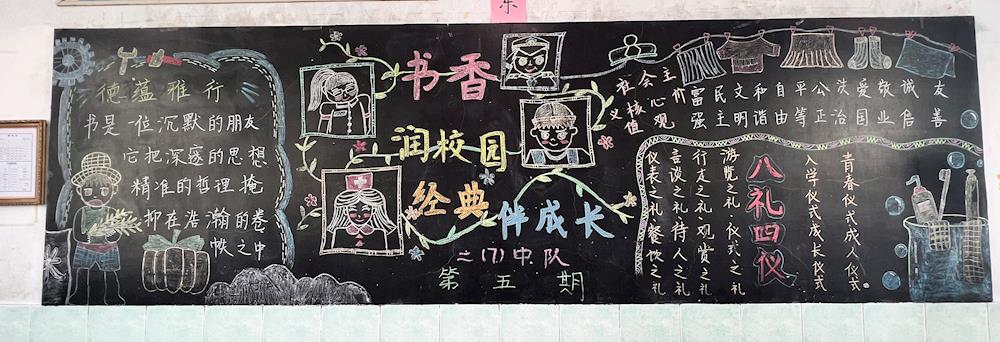 东
德蕴雅行
书是一位沉默的朋友
它把深邃的思想
精准的哲理掩
抑在浩瀚的卷
帙之中
书香
润校园
经典
伴成长
二(7)中队
第五期
社会主
义核心价
值观
富强
民主
文明
和谐
自由
平等
公正
法治
爱国
敬业
诚信
友善
八礼四仪
游览之礼·仪式之礼
行走之礼 观赏之礼
言谈之礼 待人之礼
仪表之礼 餐饮之礼
青春仪式成人仪式
入学仪式成长仪式